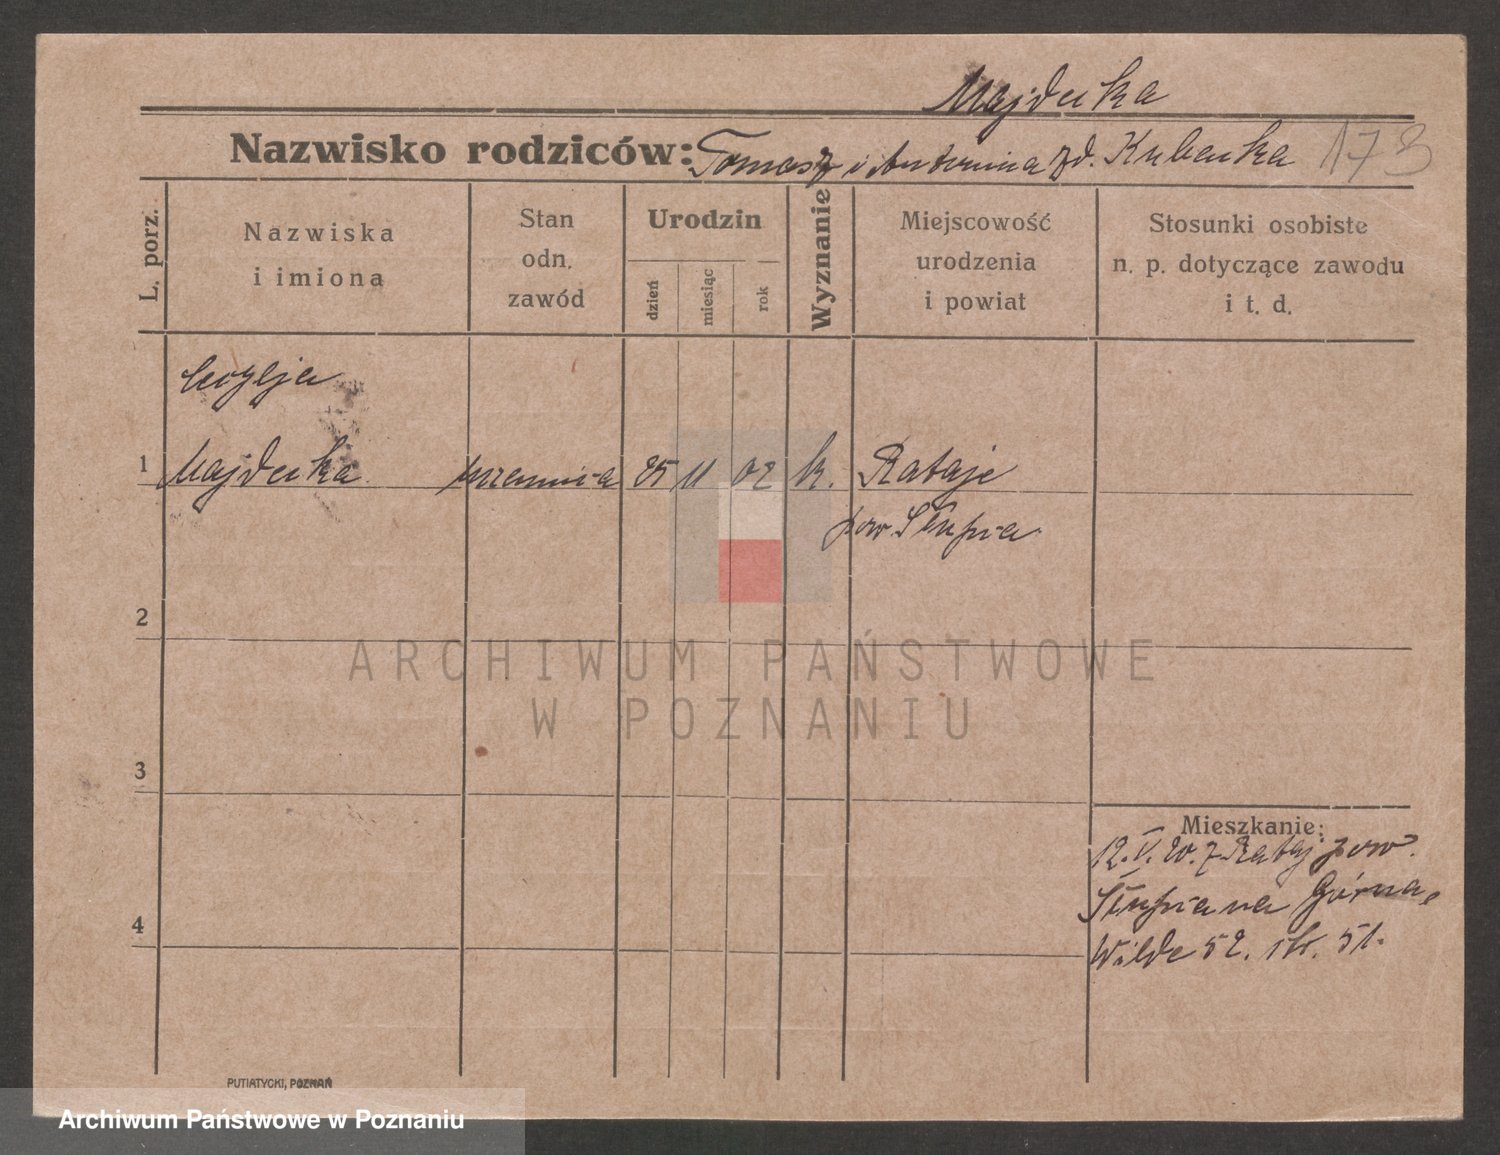 Majducka
Nazwisko rodziców: Tomasz i Antonina zd. Kubacka 173
L. porz.
Nazwiska
i imiona
Stan
odn.
zawód
Urodzin
dzień
miesiąc
rok
Wyznanie
Miejscowość
urodzenia
i powiat
Stosunki osobiste
n. p. dotyczące zawodu
i t. d.
1 Majducka uczennica 25 11 02 k. Rataje
pow. Słupia
2
3
4
Mieszkanie:
12.V.20. z Rataj pow.
Słupia na Górna
Wilde 52. 51.
PUTIATYCKI, POZNAŃ
ARCHIWUM PAŃSTWOWE
W POZNANIU
Archiwum Państwowe w Poznaniu